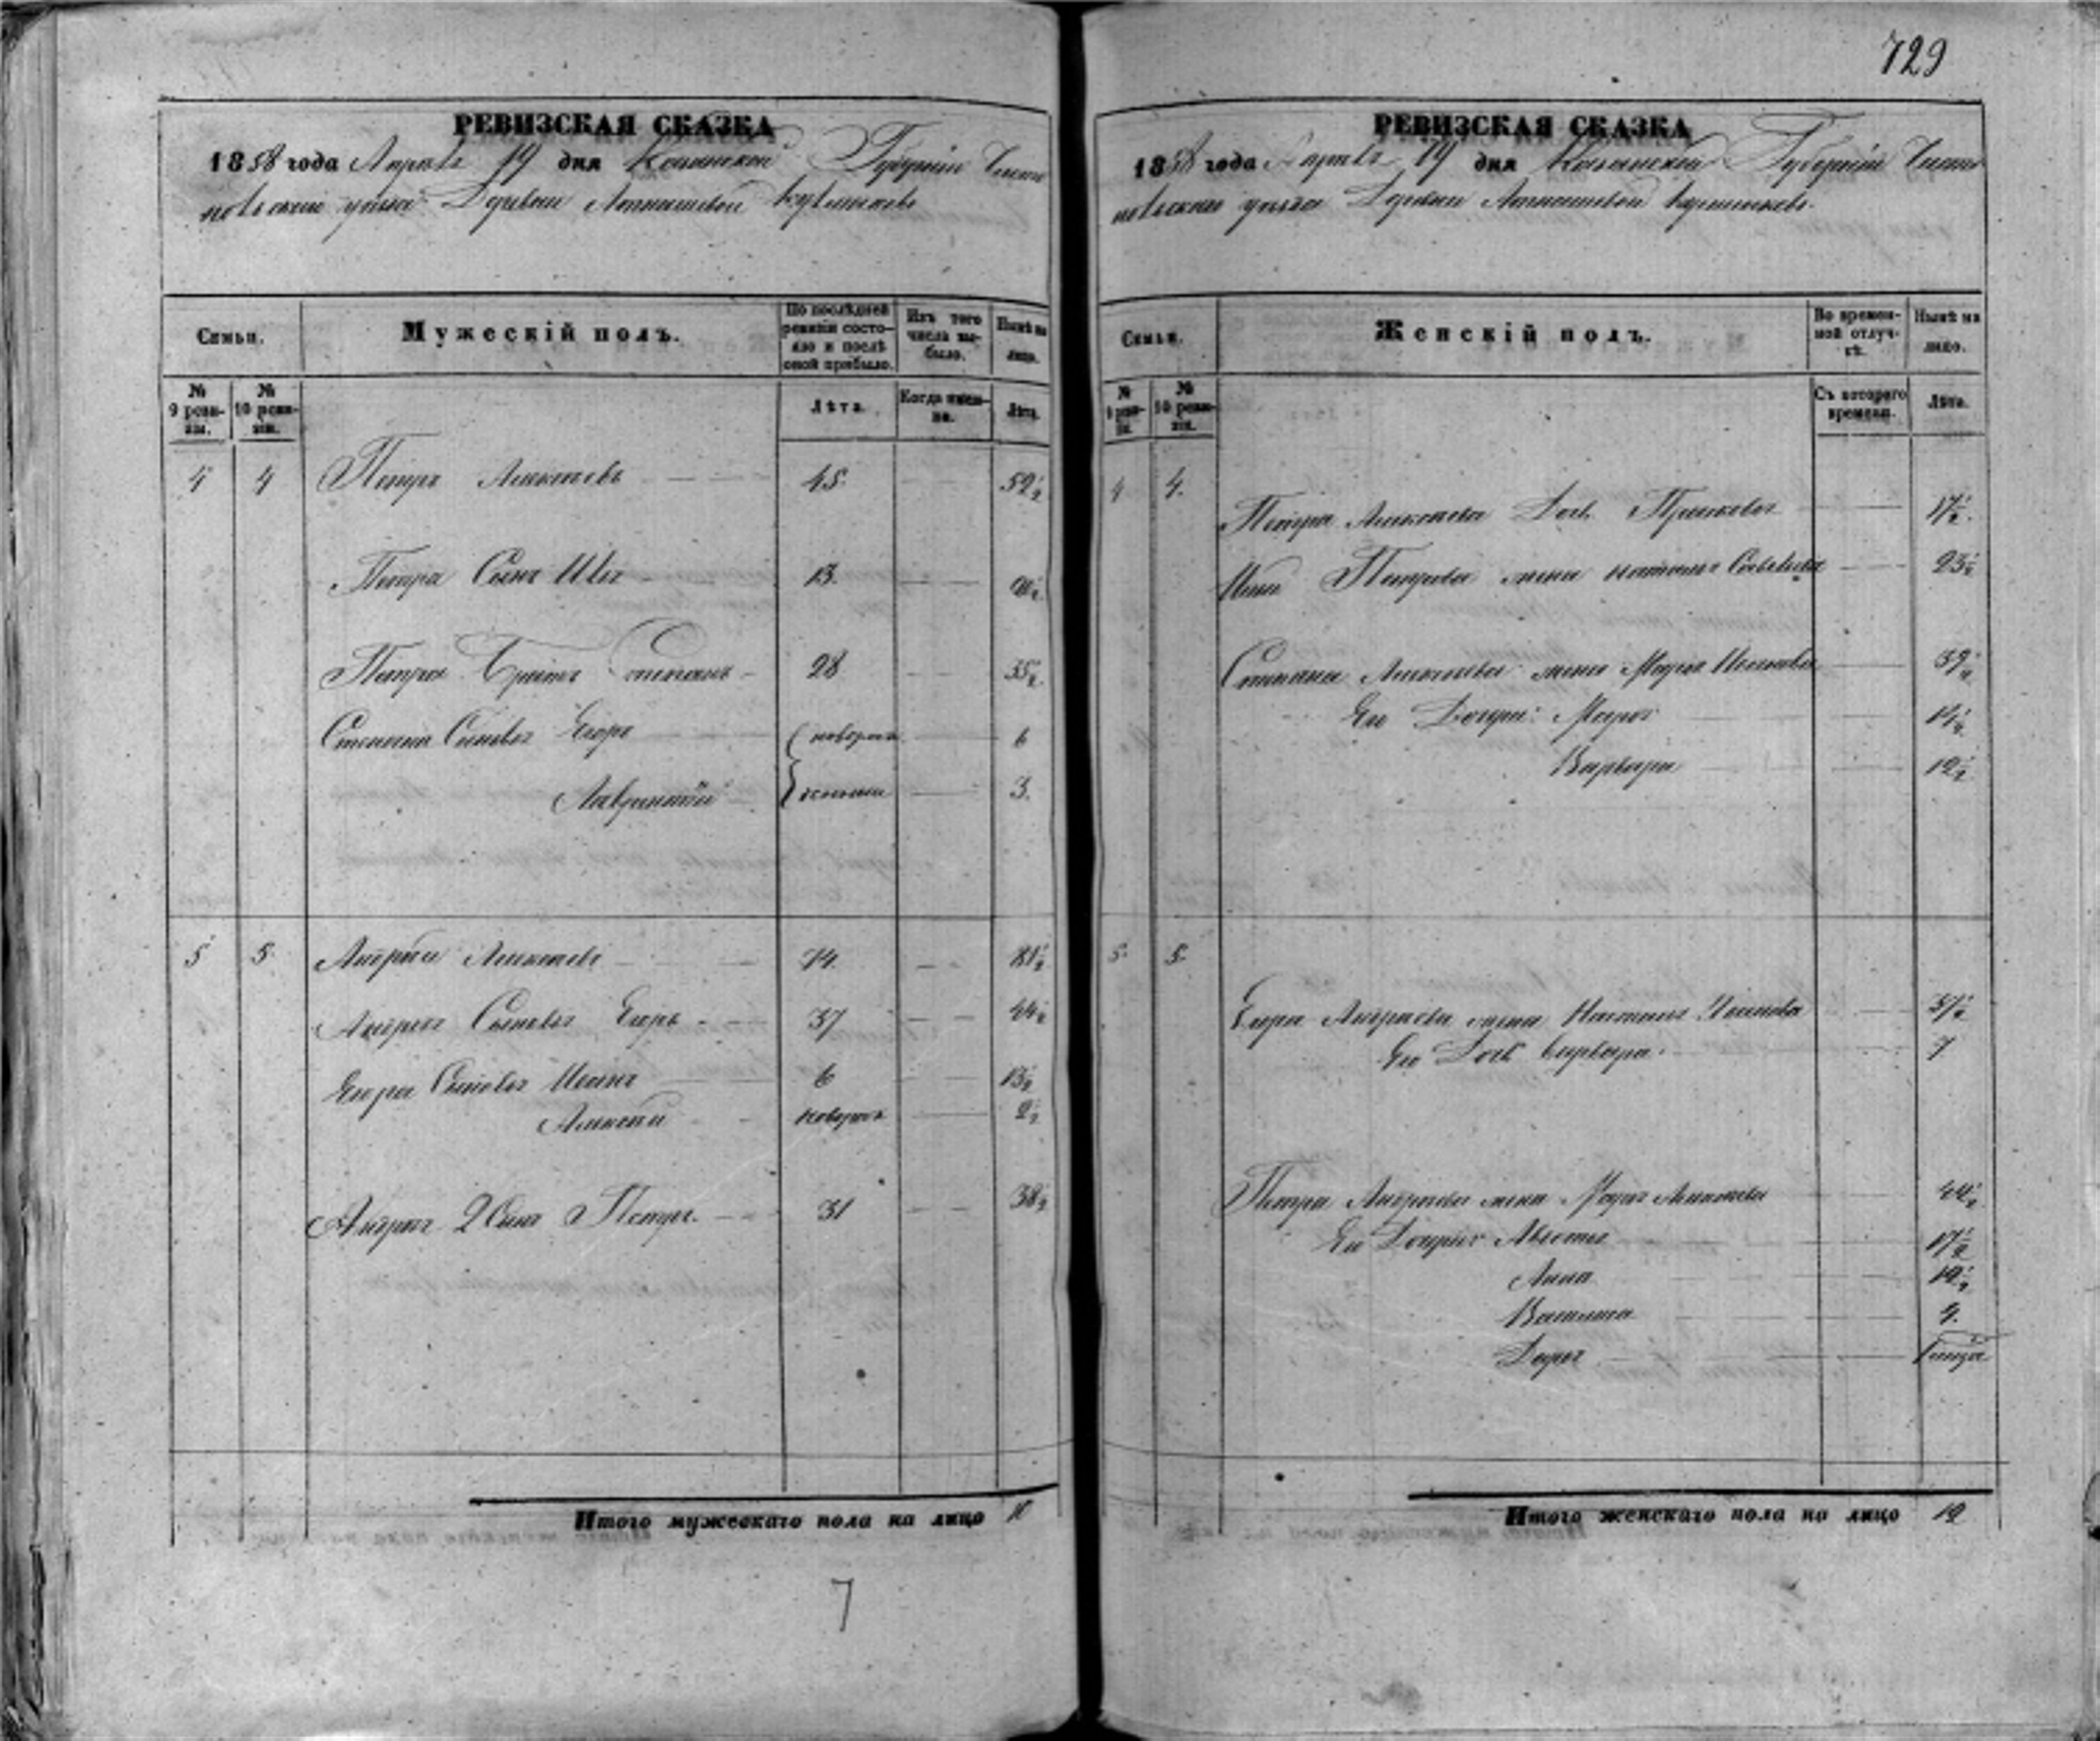 729
РЕВИЗСКАЯ СКАЗКА
1858 года Апреля 19 дня Казанской Губерніи Чисто
польскаго уезда Деревни
Семьи.
Мужескій полъ.
По послѣдней ревизіи состояло и послѣ оной прибыло.
Изъ того числа выбыло.
Нынѣ на лицо.
№ 9 ревизіи.
№ 10 ревизіи.
Лѣта.
Когда именно.
Лѣта.
4 4 Петръ Алексѣевъ 45. 52½
Петра Сынъ 13.
Петра Братъ Степанъ 28 35½
Степана Сыновья Егоръ новорож 6
Лаврентій 3.
5 5 Андрей Алексѣевъ 74. 81½
Андрея Сыновья Егоръ 37 44½
Егора Сыновья Иванъ 6 13½
Алексей новорож 2½
Андрея 2 Сынъ Петръ 31 38½
Итого мужескаго пола на лицо 10
7
РЕВИЗСКАЯ СКАЗКА
1858 года Апреля 19 дня Казанской Губерніи Чисто
польскаго уезда Деревни
Семьи.
Женскій полъ.
Во временной отлучкѣ.
Нынѣ на лицо.
№ 9 ревизіи.
№ 10 ревизіи.
Съ котораго времени.
Лѣта.
4 4. Петра Алексеева Дочь 17½
Петрова жена Наталья Савельева 23½
Степана Алексеева жена Марья Иванова 39½
Его Дочери: Марья 14½
Варвара 12½
5. 5. Егора Андреева жена Настасья 37½
Его Дочь Варвара. 7
Петра Андреева жена Марья Алексеева 44½
Его Дочери Авдотья 17½
Анна
Василиса 4.
Дарья
Итого женскаго пола на лицо 12